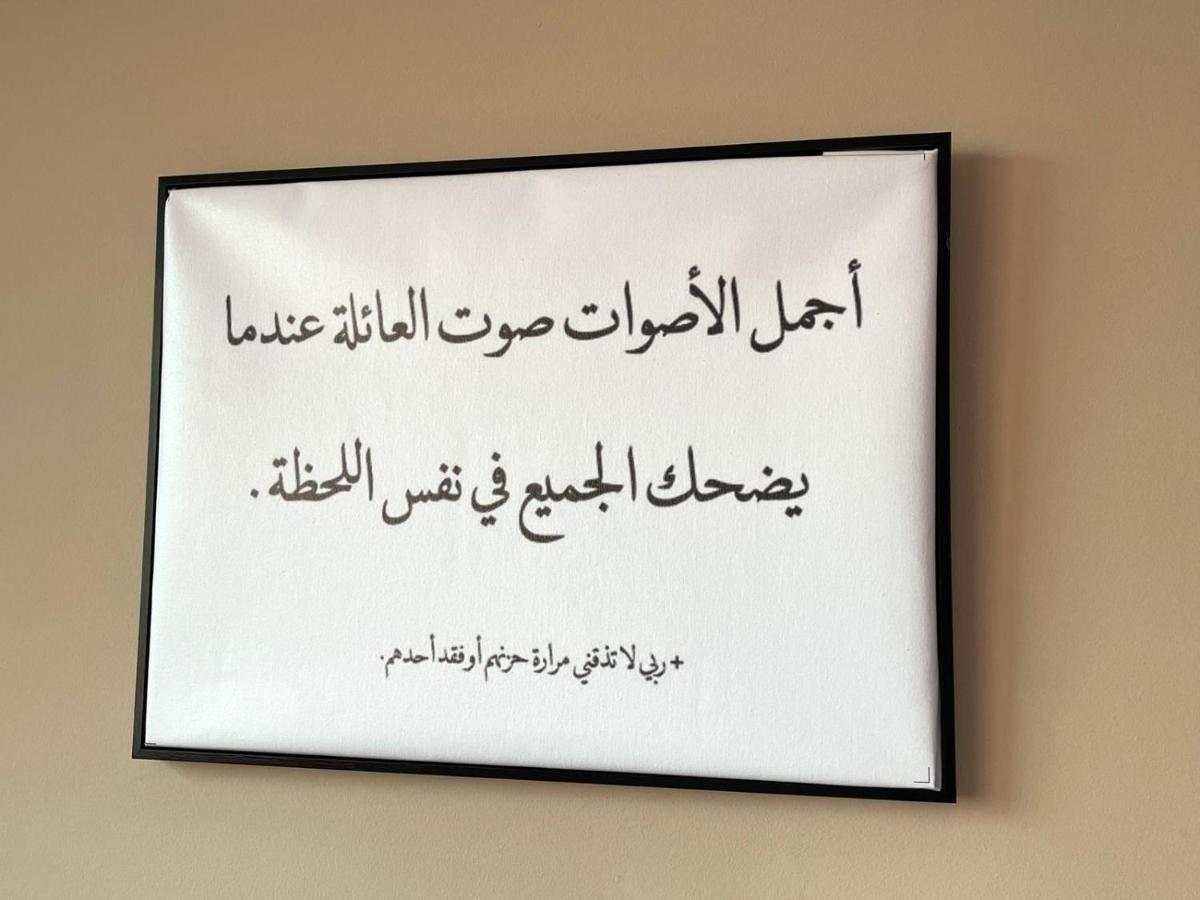 أجمل الأصوات صوت العائلة عندما
يضحك الجميع في نفس اللحظة.
+ ربي لا تذقني مرارة حزنهم أو فقد أحدهم.